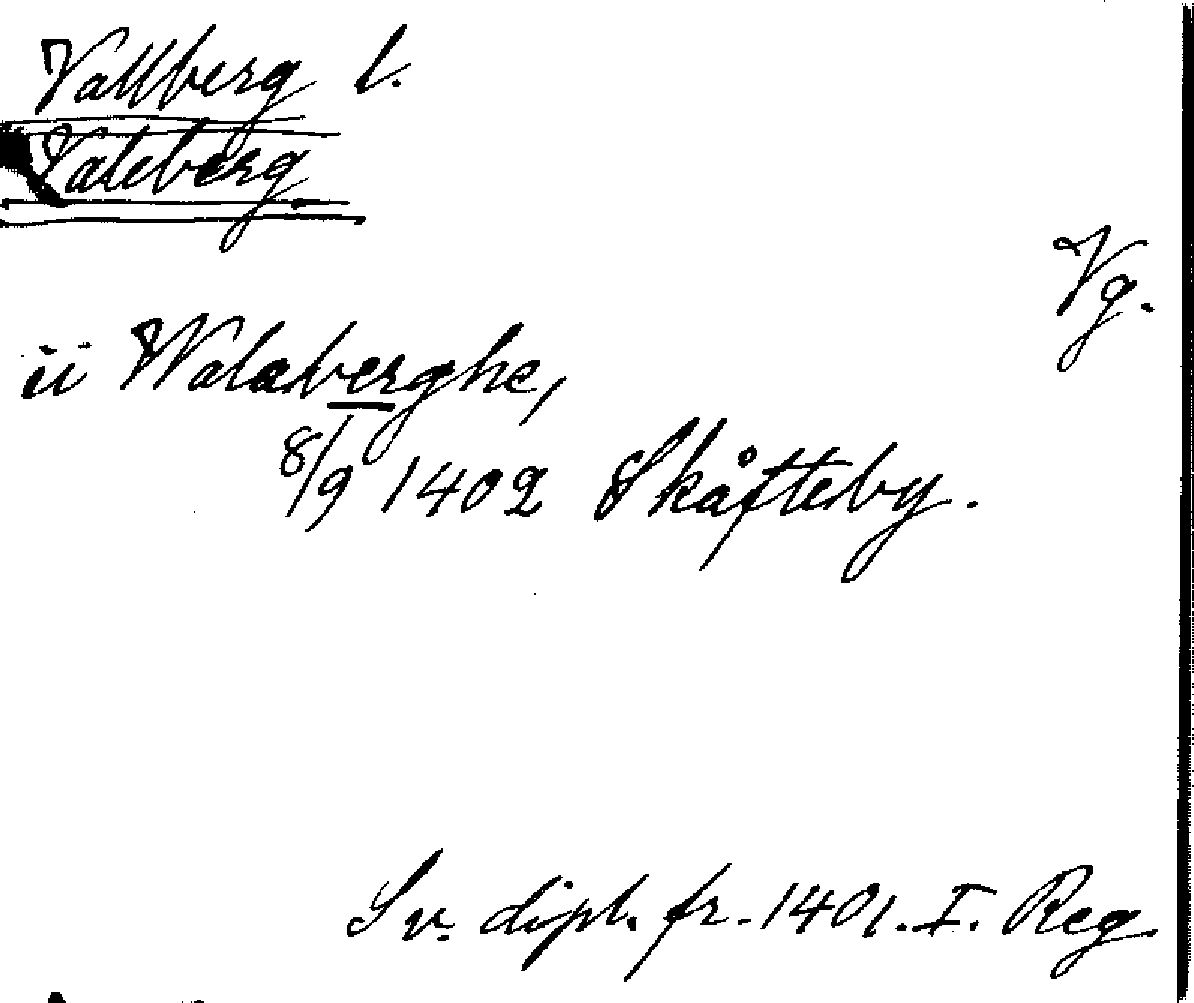 Vallberg l.
Valeberg
Vg.
ii Walaberghe,
8/9 1402 Skåfteby.
Sv. dipl. fr. 1401. I. Reg.